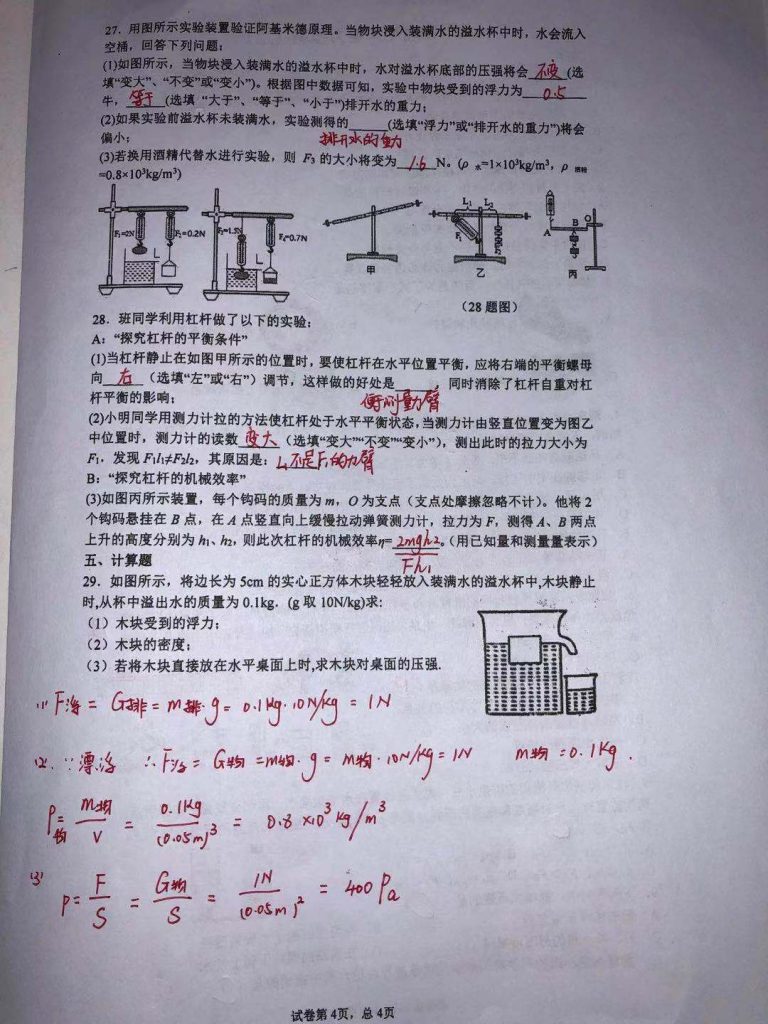 27. 用图所示实验装置验证阿基米德原理。当物块浸入装满水的溢水杯中时，水会流入
空桶，回答下列问题：
(1)如图所示，当物块浸入装满水的溢水杯中时，水对溢水杯底部的压强将会 不变 (选
填“变大”、“不变”或“变小”)。根据图中数据可知，实验中物块受到的浮力为 0.5
牛， 等于 (选填 “大于”、“等于”、“小于”)排开水的重力；
(2)如果实验前溢水杯未装满水，实验测得的______(选填“浮力”或“排开水的重力”)将会
偏小； 排开水的重力
(3)若换用酒精代替水进行实验，则 F₃ 的大小将变为 1.6 N。(ρ 水=1×10³kg/m³，ρ 酒精
=0.8×10³kg/m³)
F₁=2N F₂=0.2N F₃=1.5N F₄=0.7N
L₁ L₂
F₁
A B O
甲 乙 丙
(28 题图)
28. 班同学利用杠杆做了以下的实验；
A：“探究杠杆的平衡条件”
(1)当杠杆静止在如图甲所示的位置时，要使杠杆在水平位置平衡，应将右端的平衡螺母
向 右 （选填“左”或“右”）调节，这样做的好处是______，同时消除了杠杆自重对杠
杆平衡的影响； 便于测量力臂
(2)小明同学用测力计拉的方法使杠杆处于水平平衡状态，当测力计由竖直位置变为图乙
中位置时，测力计的读数 变大 （选填“变大”“不变”“变小”），测出此时的拉力大小为
F₁，发现 F₁l₁≠F₂l₂，其原因是：L₁不是F₁的力臂
B：“探究杠杆的机械效率”
(3)如图丙所示装置，每个钩码的质量为 m，O 为支点（支点处摩擦忽略不计）。他将 2
个钩码悬挂在 B 点，在 A 点竖直向上缓慢拉动弹簧测力计，拉力为 F，测得 A、B 两点
上升的高度分别为 h₁、h₂，则此次杠杆的机械效率η= 2mgh₂/Fh₁。（用已知量和测量量表示）
五、计算题
29. 如图所示，将边长为 5cm 的实心正方体木块轻轻放入装满水的溢水杯中,木块静止
时,从杯中溢出水的质量为 0.1kg．(g 取 10N/kg)求:
（1）木块受到的浮力；
（2）木块的密度；
（3）若将木块直接放在水平桌面上时,求木块对桌面的压强.
(1) F浮 = G排 = m排·g = 0.1kg·10N/kg = 1N
(2) ∵漂浮 ∴F浮 = G物 = m物·g = m物·10N/kg = 1N m物 = 0.1kg.
ρ物 = m物/V = 0.1kg/(0.05m)³ = 0.8×10³kg/m³
(3) P = F/S = G物/S = 1N/(0.05m)² = 400Pa
试卷第 4页，总 4页